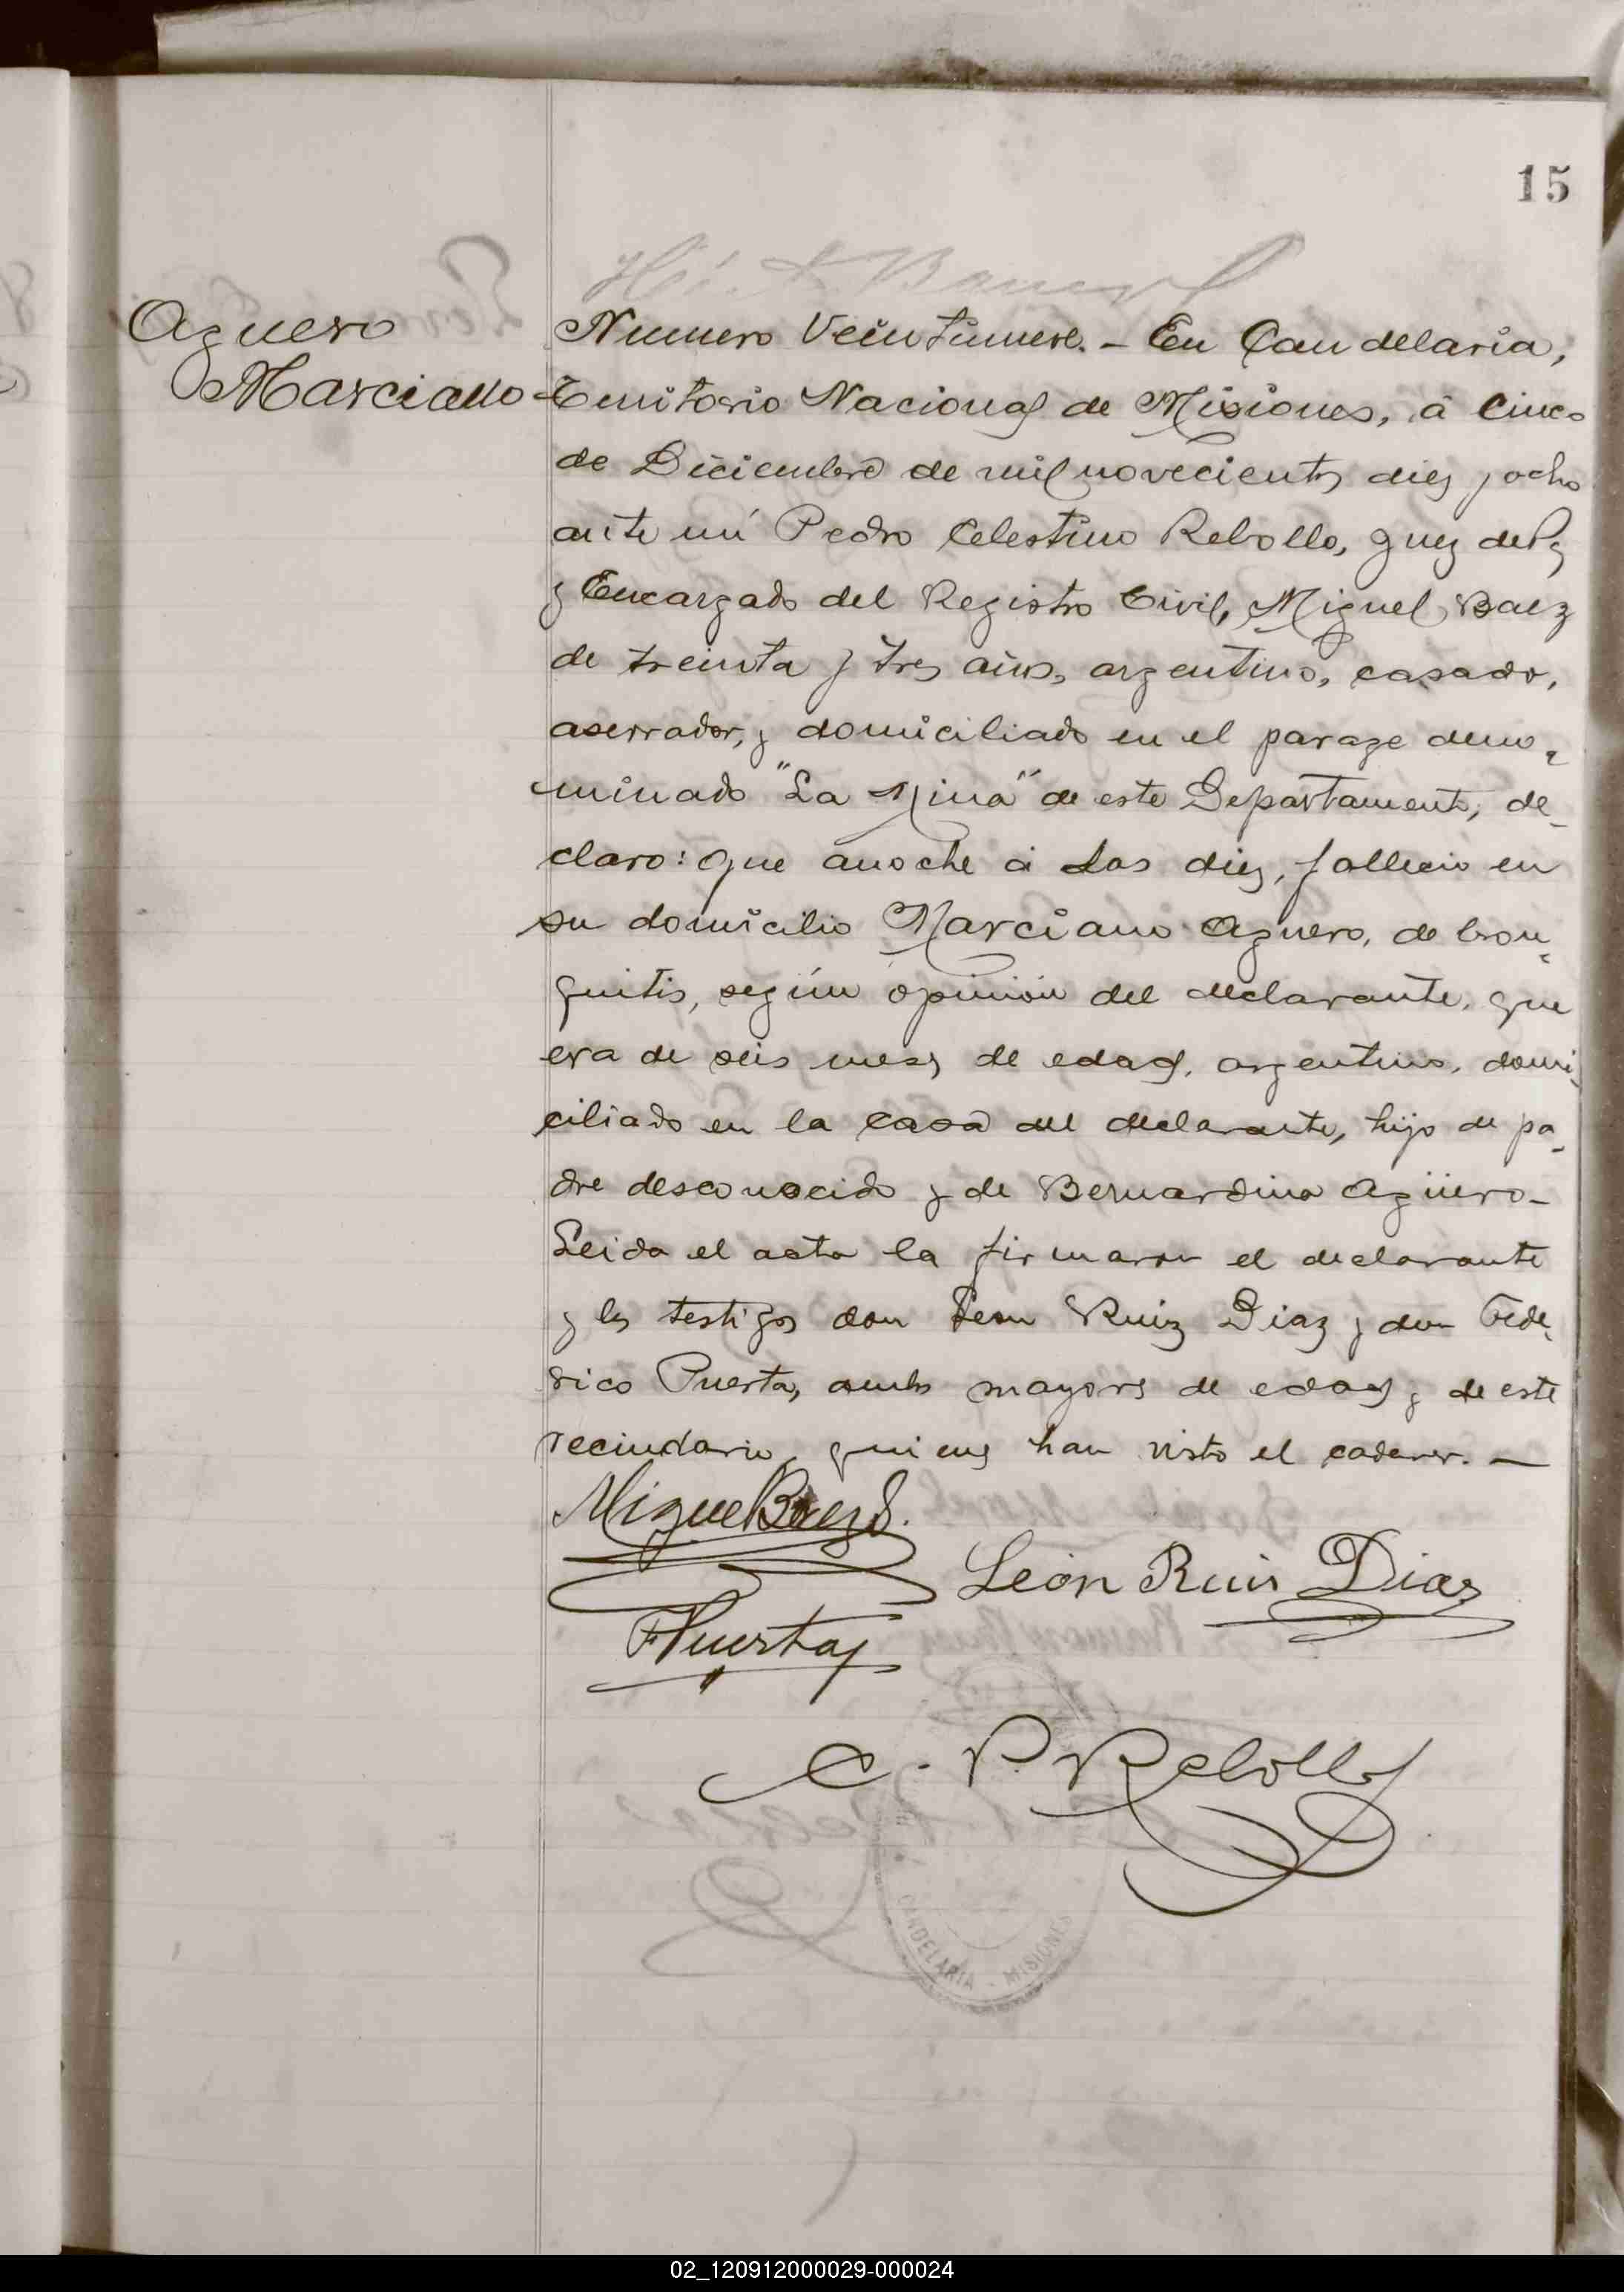 15
Aguero
Marciano
Numero Veintinueve. - En Candelaria,
Territorio Nacional de Misiones, á cinco
de Diciembre de mil novecientos diez y ocho
ante mi Pedro Celestino Rebollo, Juez de Paz
y Encargado del Registro Civil, Miguel Baez
de treinta y tres años, argentino, casado,
aserrador, y domiciliado en el parage deno-
minado "La Mina" de este Departamento, de-
claro: Que anoche á las diez, fallecio en
su domicilio Marciano Aguero, de bron-
quitis, según opinión del declarante, que
era de seis meses de edad, argentino, domi-
ciliado en la casa del declarante, hijo de pa-
dre desconocido y de Bernardina Agüero-
Leida el acta la firmaron el declarante
y los testigos don León Ruiz Diaz y don Fede-
rico Puerta, ambos mayores de edad y de este
vecindario, quienes han visto el cadaver. -
Miguel Baez
León Ruis Diaz
FPuerta
C. P. Rebollo
CANDELARIA - MISIONES
02_120912000029-000024